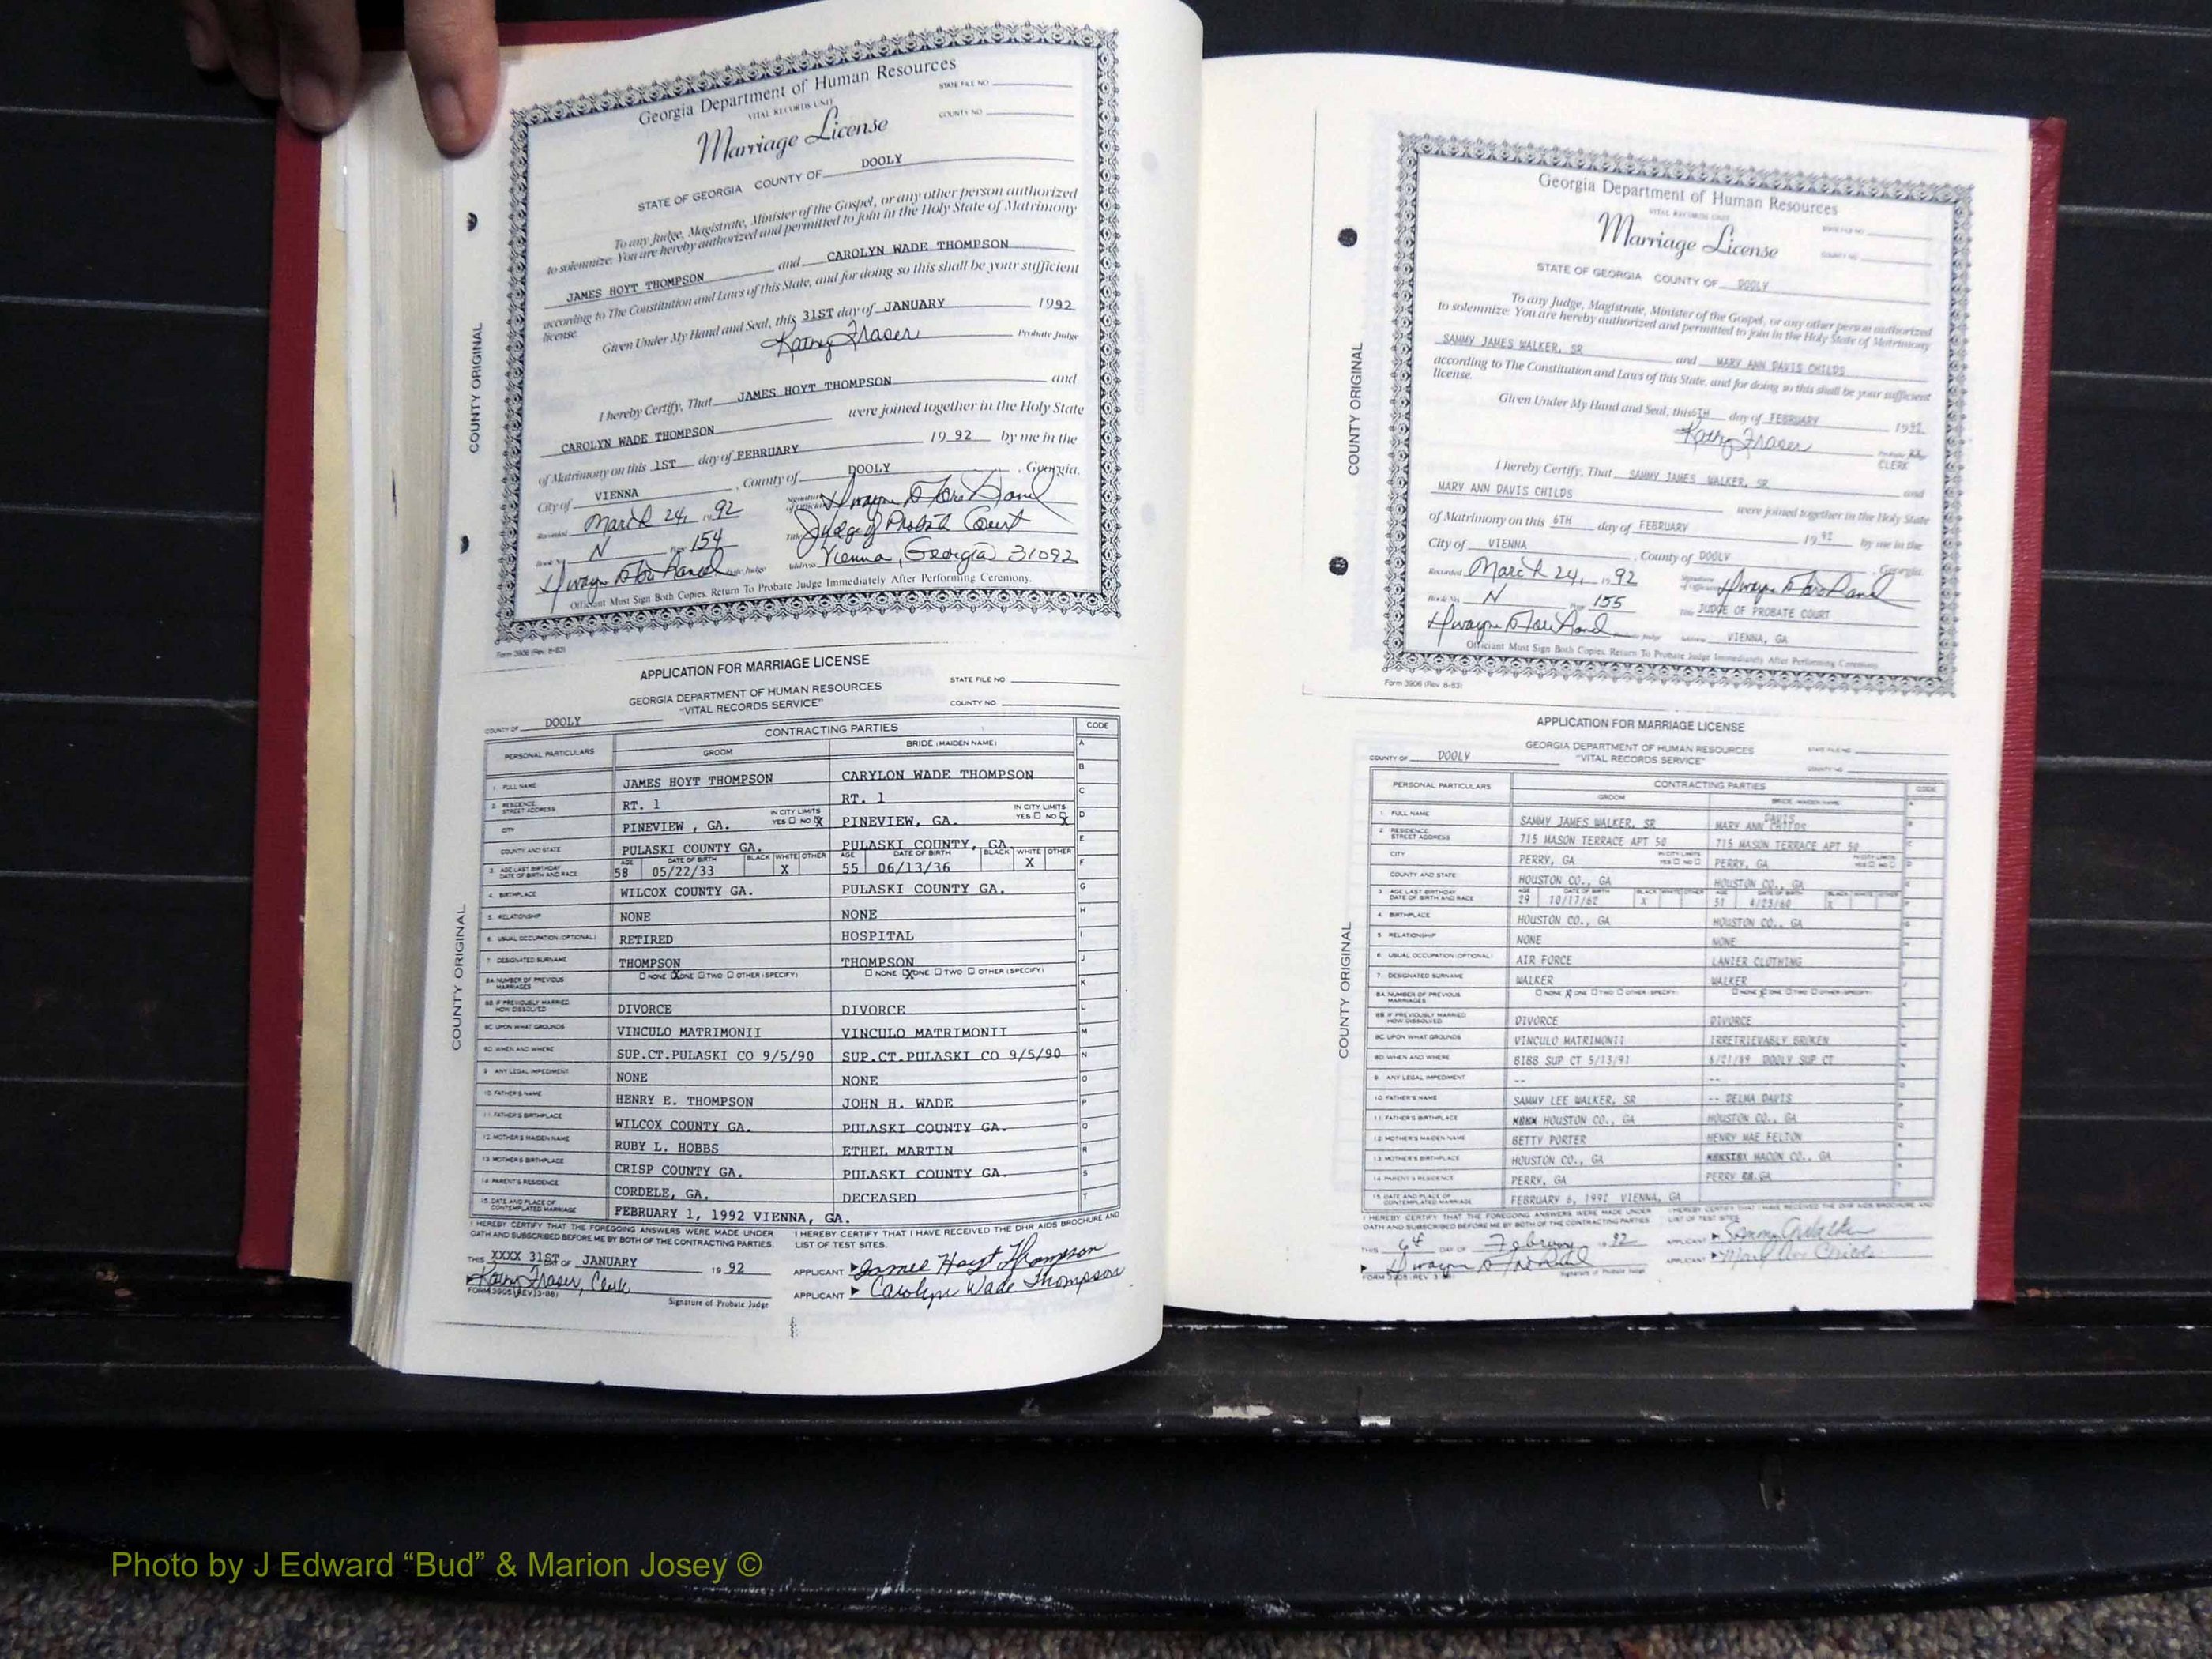 Georgia Department of Human Resources
VITAL RECORDS UNIT
STATE FILE NO.
COUNTY NO.
Marriage License
STATE OF GEORGIA COUNTY OF DOOLY
To any Judge, Magistrate, Minister of the Gospel, or any other person authorized
to solemnize: You are hereby authorized and permitted to join in the Holy State of Matrimony
JAMES HOYT THOMPSON and CAROLYN WADE THOMPSON
according to The Constitution and Laws of this State, and for doing so this shall be your sufficient
license.
Given Under My Hand and Seal, this 31ST day of JANUARY 1992
Kathy Fraser Probate Judge
I hereby Certify, That JAMES HOYT THOMPSON and
CAROLYN WADE THOMPSON were joined together in the Holy State
of Matrimony on this 1ST day of FEBRUARY 19 92 by me in the
City of VIENNA, County of DOOLY, Georgia.
Recorded March 24, 1992 Signature of Official
Book No. N Page 154 Title Judge of Probate Court
Probate Judge Address Vienna, Georgia 31092
Officiant Must Sign Both Copies. Return To Probate Judge Immediately After Performing Ceremony.
Form 3906 (Rev. 8-83)
COUNTY ORIGINAL
APPLICATION FOR MARRIAGE LICENSE
GEORGIA DEPARTMENT OF HUMAN RESOURCES
"VITAL RECORDS SERVICE"
STATE FILE NO.
COUNTY NO.
COUNTY OF DOOLY
PERSONAL PARTICULARS CONTRACTING PARTIES CODE
GROOM BRIDE (MAIDEN NAME) A
1. FULL NAME JAMES HOYT THOMPSON CARYLON WADE THOMPSON B
2. RESIDENCE: STREET ADDRESS RT. 1 RT. 1 C
CITY PINEVIEW , GA. IN CITY LIMITS YES NO X PINEVIEW, GA. IN CITY LIMITS YES NO X D
COUNTY AND STATE PULASKI COUNTY GA. PULASKI COUNTY, GA E
3. AGE LAST BIRTHDAY DATE OF BIRTH AND RACE AGE 58 DATE OF BIRTH 05/22/33 BLACK WHITE X OTHER AGE 55 DATE OF BIRTH 06/13/36 BLACK WHITE X OTHER F
4. BIRTHPLACE WILCOX COUNTY GA. PULASKI COUNTY GA. G
5. RELATIONSHIP NONE NONE H
6. USUAL OCCUPATION (OPTIONAL) RETIRED HOSPITAL I
7. DESIGNATED SURNAME THOMPSON THOMPSON J
8A. NUMBER OF PREVIOUS MARRIAGES NONE X ONE TWO OTHER (SPECIFY) NONE X ONE TWO OTHER (SPECIFY) K
8B. IF PREVIOUSLY MARRIED HOW DISSOLVED DIVORCE DIVORCE L
8C. UPON WHAT GROUNDS VINCULO MATRIMONII VINCULO MATRIMONII M
8D. WHEN AND WHERE SUP.CT.PULASKI CO 9/5/90 SUP.CT.PULASKI CO 9/5/90 N
9. ANY LEGAL IMPEDIMENT NONE NONE O
10. FATHER'S NAME HENRY E. THOMPSON JOHN H. WADE P
11. FATHER'S BIRTHPLACE WILCOX COUNTY GA. PULASKI COUNTY GA. Q
12. MOTHER'S MAIDEN NAME RUBY L. HOBBS ETHEL MARTIN R
13. MOTHER'S BIRTHPLACE CRISP COUNTY GA. PULASKI COUNTY GA. S
14. PARENT'S RESIDENCE CORDELE, GA. DECEASED T
15. DATE AND PLACE OF CONTEMPLATED MARRIAGE FEBRUARY 1, 1992 VIENNA, GA.
I HEREBY CERTIFY THAT THE FOREGOING ANSWERS WERE MADE UNDER
OATH AND SUBSCRIBED BEFORE ME BY BOTH OF THE CONTRACTING PARTIES.
I HEREBY CERTIFY THAT I HAVE RECEIVED THE DHR AIDS BROCHURE AND
LIST OF TEST SITES.
THIS XXXX 31ST DAY OF JANUARY 19 92
Kathy Fraser, Clerk
Signature of Probate Judge
FORM 3905 (REV. 3-86)
APPLICANT James Hoyt Thompson
APPLICANT Carolyn Wade Thompson
COUNTY ORIGINAL
Georgia Department of Human Resources
VITAL RECORDS UNIT
STATE FILE NO.
COUNTY NO.
Marriage License
STATE OF GEORGIA COUNTY OF DOOLY
To any Judge, Magistrate, Minister of the Gospel, or any other person authorized
to solemnize: You are hereby authorized and permitted to join in the Holy State of Matrimony
SAMMY JAMES WALKER, SR and MARY ANN DAVIS CHILDS
according to The Constitution and Laws of this State, and for doing so this shall be your sufficient
license.
Given Under My Hand and Seal, this 6TH day of FEBRUARY 1992
Kathy Fraser
CLERK
I hereby Certify, That SAMMY JAMES WALKER, SR and
MARY ANN DAVIS CHILDS were joined together in the Holy State
of Matrimony on this 6TH day of FEBRUARY 19 92 by me in the
City of VIENNA, County of DOOLY, Georgia.
Recorded March 24, 1992 Signature of Official
Book No. N Page 155 Title JUDGE OF PROBATE COURT
Probate Judge Address VIENNA, GA
Officiant Must Sign Both Copies. Return To Probate Judge Immediately After Performing Ceremony.
Form 3906 (Rev. 8-83)
COUNTY ORIGINAL
APPLICATION FOR MARRIAGE LICENSE
GEORGIA DEPARTMENT OF HUMAN RESOURCES
"VITAL RECORDS SERVICE"
STATE FILE NO.
COUNTY NO.
COUNTY OF DOOLY
PERSONAL PARTICULARS CONTRACTING PARTIES CODE
GROOM BRIDE (MAIDEN NAME)
1. FULL NAME SAMMY JAMES WALKER, SR MARY ANN DAVIS CHILDS
2. RESIDENCE: STREET ADDRESS 715 MASON TERRACE APT 50 715 MASON TERRACE APT 50
CITY PERRY, GA IN CITY LIMITS YES NO PERRY, GA IN CITY LIMITS YES NO
COUNTY AND STATE HOUSTON CO., GA HOUSTON CO., GA
3. AGE LAST BIRTHDAY DATE OF BIRTH AND RACE AGE 29 DATE OF BIRTH 10/17/62 BLACK X WHITE OTHER AGE 31 DATE OF BIRTH 4/23/60 BLACK X WHITE OTHER
4. BIRTHPLACE HOUSTON CO., GA HOUSTON CO., GA
5. RELATIONSHIP NONE NONE
6. USUAL OCCUPATION (OPTIONAL) AIR FORCE LANIER CLOTHING
7. DESIGNATED SURNAME WALKER WALKER
8A. NUMBER OF PREVIOUS MARRIAGES NONE X ONE TWO OTHER (SPECIFY) NONE X ONE TWO OTHER (SPECIFY)
8B. IF PREVIOUSLY MARRIED HOW DISSOLVED DIVORCE DIVORCE
8C. UPON WHAT GROUNDS VINCULO MATRIMONII IRRETRIEVABLY BROKEN
8D. WHEN AND WHERE BIBB SUP CT 5/13/91 DOOLY SUP CT
9. ANY LEGAL IMPEDIMENT -- --
10. FATHER'S NAME SAMMY LEE WALKER, SR -- DELMA DAVIS
11. FATHER'S BIRTHPLACE HOUSTON CO., GA HOUSTON CO., GA
12. MOTHER'S MAIDEN NAME BETTY PORTER HENRY MAE FELTON
13. MOTHER'S BIRTHPLACE HOUSTON CO., GA MACON CO., GA
14. PARENT'S RESIDENCE PERRY, GA PERRY GA
15. DATE AND PLACE OF CONTEMPLATED MARRIAGE FEBRUARY 6, 1992 VIENNA, GA
I HEREBY CERTIFY THAT THE FOREGOING ANSWERS WERE MADE UNDER
OATH AND SUBSCRIBED BEFORE ME BY BOTH OF THE CONTRACTING PARTIES
I HEREBY CERTIFY THAT I HAVE RECEIVED THE DHR AIDS BROCHURE AND
LIST OF TEST SITES.
THIS DAY OF February 1992
Signature of Probate Judge
FORM 3905 (REV. 3-86)
APPLICANT
APPLICANT Mary Ann Childs
COUNTY ORIGINAL
Photo by J Edward “Bud” & Marion Josey ©